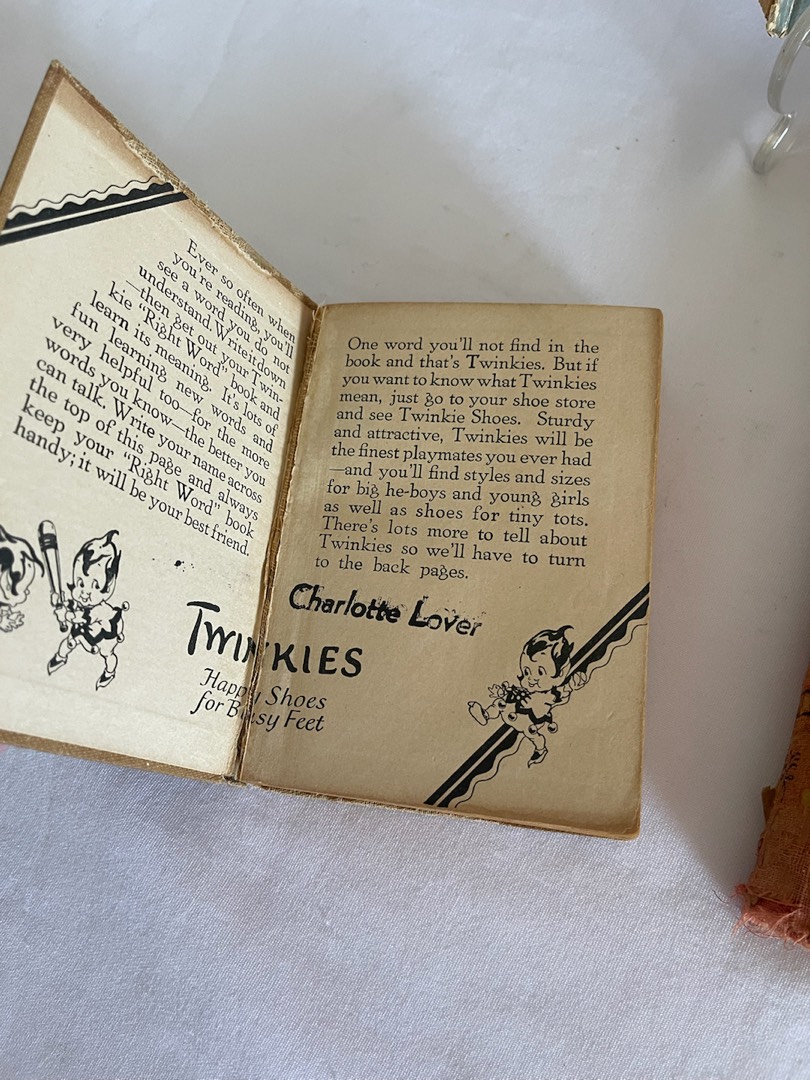 Ever so often when
you're reading, you'll
see a word you do not
understand. Write it down
—then get out your Twin-
kie "Right Word" book and
learn its meaning. It's lots of
fun learning new words and
very helpful too—for the more
words you know—the better you
can talk. Write your name across
the top of this page and always
keep your "Right Word" book
handy; it will be your best friend.
One word you'll not find in the
book and that's Twinkies. But if
you want to know what Twinkies
mean, just go to your shoe store
and see Twinkie Shoes. Sturdy
and attractive, Twinkies will be
the finest playmates you ever had
—and you'll find styles and sizes
for big he-boys and young girls
as well as shoes for tiny tots.
There's lots more to tell about
Twinkies so we'll have to turn
to the back pages.
Charlotte Lover
TWINKIES
Happy Shoes
for Busy Feet